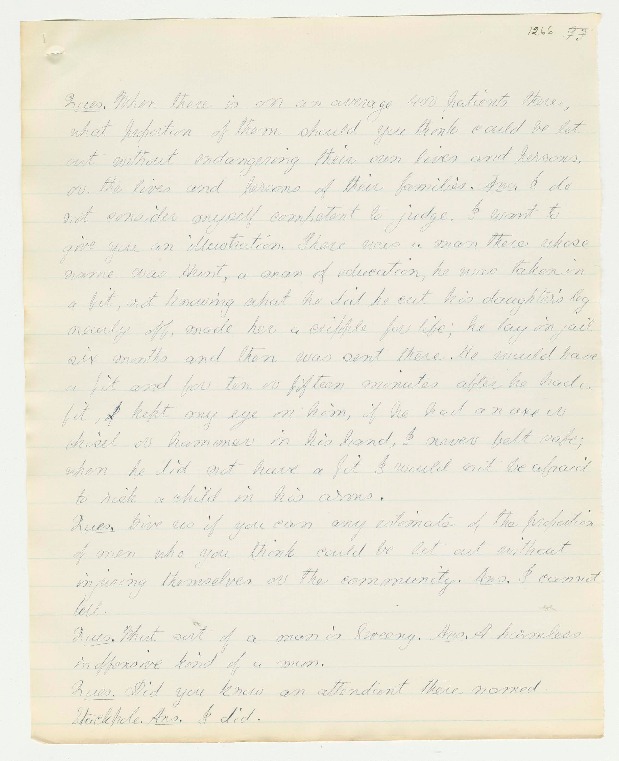 1266 77
Ques. When there is on an average 400 patients there,
what proportion of them should you think could be let
out without endangering their own lives and persons,
or the lives and persons of their families. Ans. I do
not consider myself competent to judge. I want to
give you an illustration. There was a man there whose
name was Hunt, a man of education, he was taken in
a fit, not knowing what he did he cut his daughter's leg
nearly off, made her a cripple for life; he lay in jail
six months and then was sent there. He would have
a fit and for ten or fifteen minutes after he had a
fit, I kept my eye on him, if he had an axe or
chisel or hammer in his hand, I never felt safe;
when he did not have a fit I would not be afraid
to risk a child in his arms.
Ques. Give us if you can any estimate of the proportion
of men who you think could be let out without
injuring themselves or the community. Ans. I cannot
tell.
Ques. What sort of a man is Sweeny. Ans. A harmless
inoffensive kind of a man.
Ques. Did you know an attendant there named
Stackpole. Ans. I did.